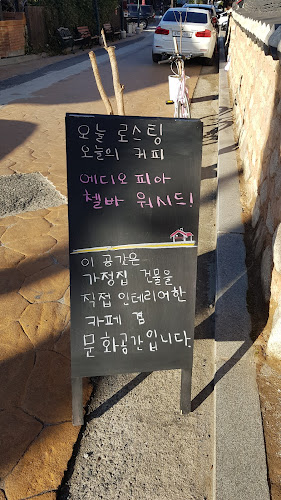 오늘 로스팅
오늘의 커피
에디오피아
첼바 워시드!
이 공간은
가정집 건물을
직접 인테리어한
카페 겸
문화공간입니다.